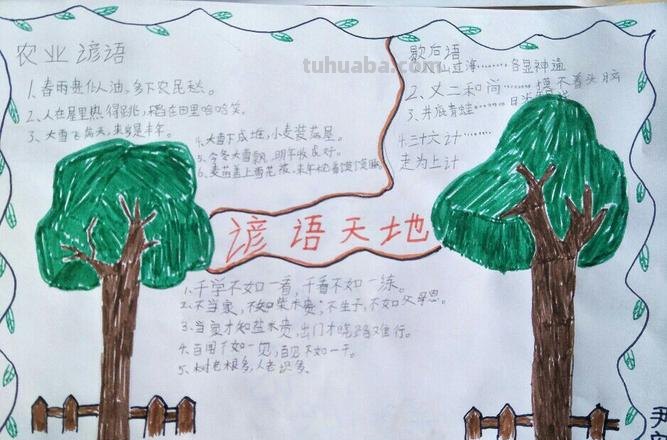 农业谚语
1、春雨贵似油,多下农民愁。
2、人在屋里热得跳,稻在田里哈哈笑。
3、大雪飞满天,来岁是丰年。
4、大雪下成堆,小麦装满屋。
5、今冬大雪飘,明年收成好。
6、麦苗盖上雪花被,来年枕着馍馍睡
tuhuaba.com
歇后语
八仙过海……各显神通
2、丈二和尚……摸不着头脑
3、井底青蛙……
4、三十六计……
走为上计
谚语天地
1、千学不如一看,千看不如一练。
2、不当家,不知柴米贵;不生子,不知父母恩。
3、当家才知盐米贵,出门才晓路难行。
4、百闻不如一见,百见不如一干。
5、树老根多,人老识多。
尹